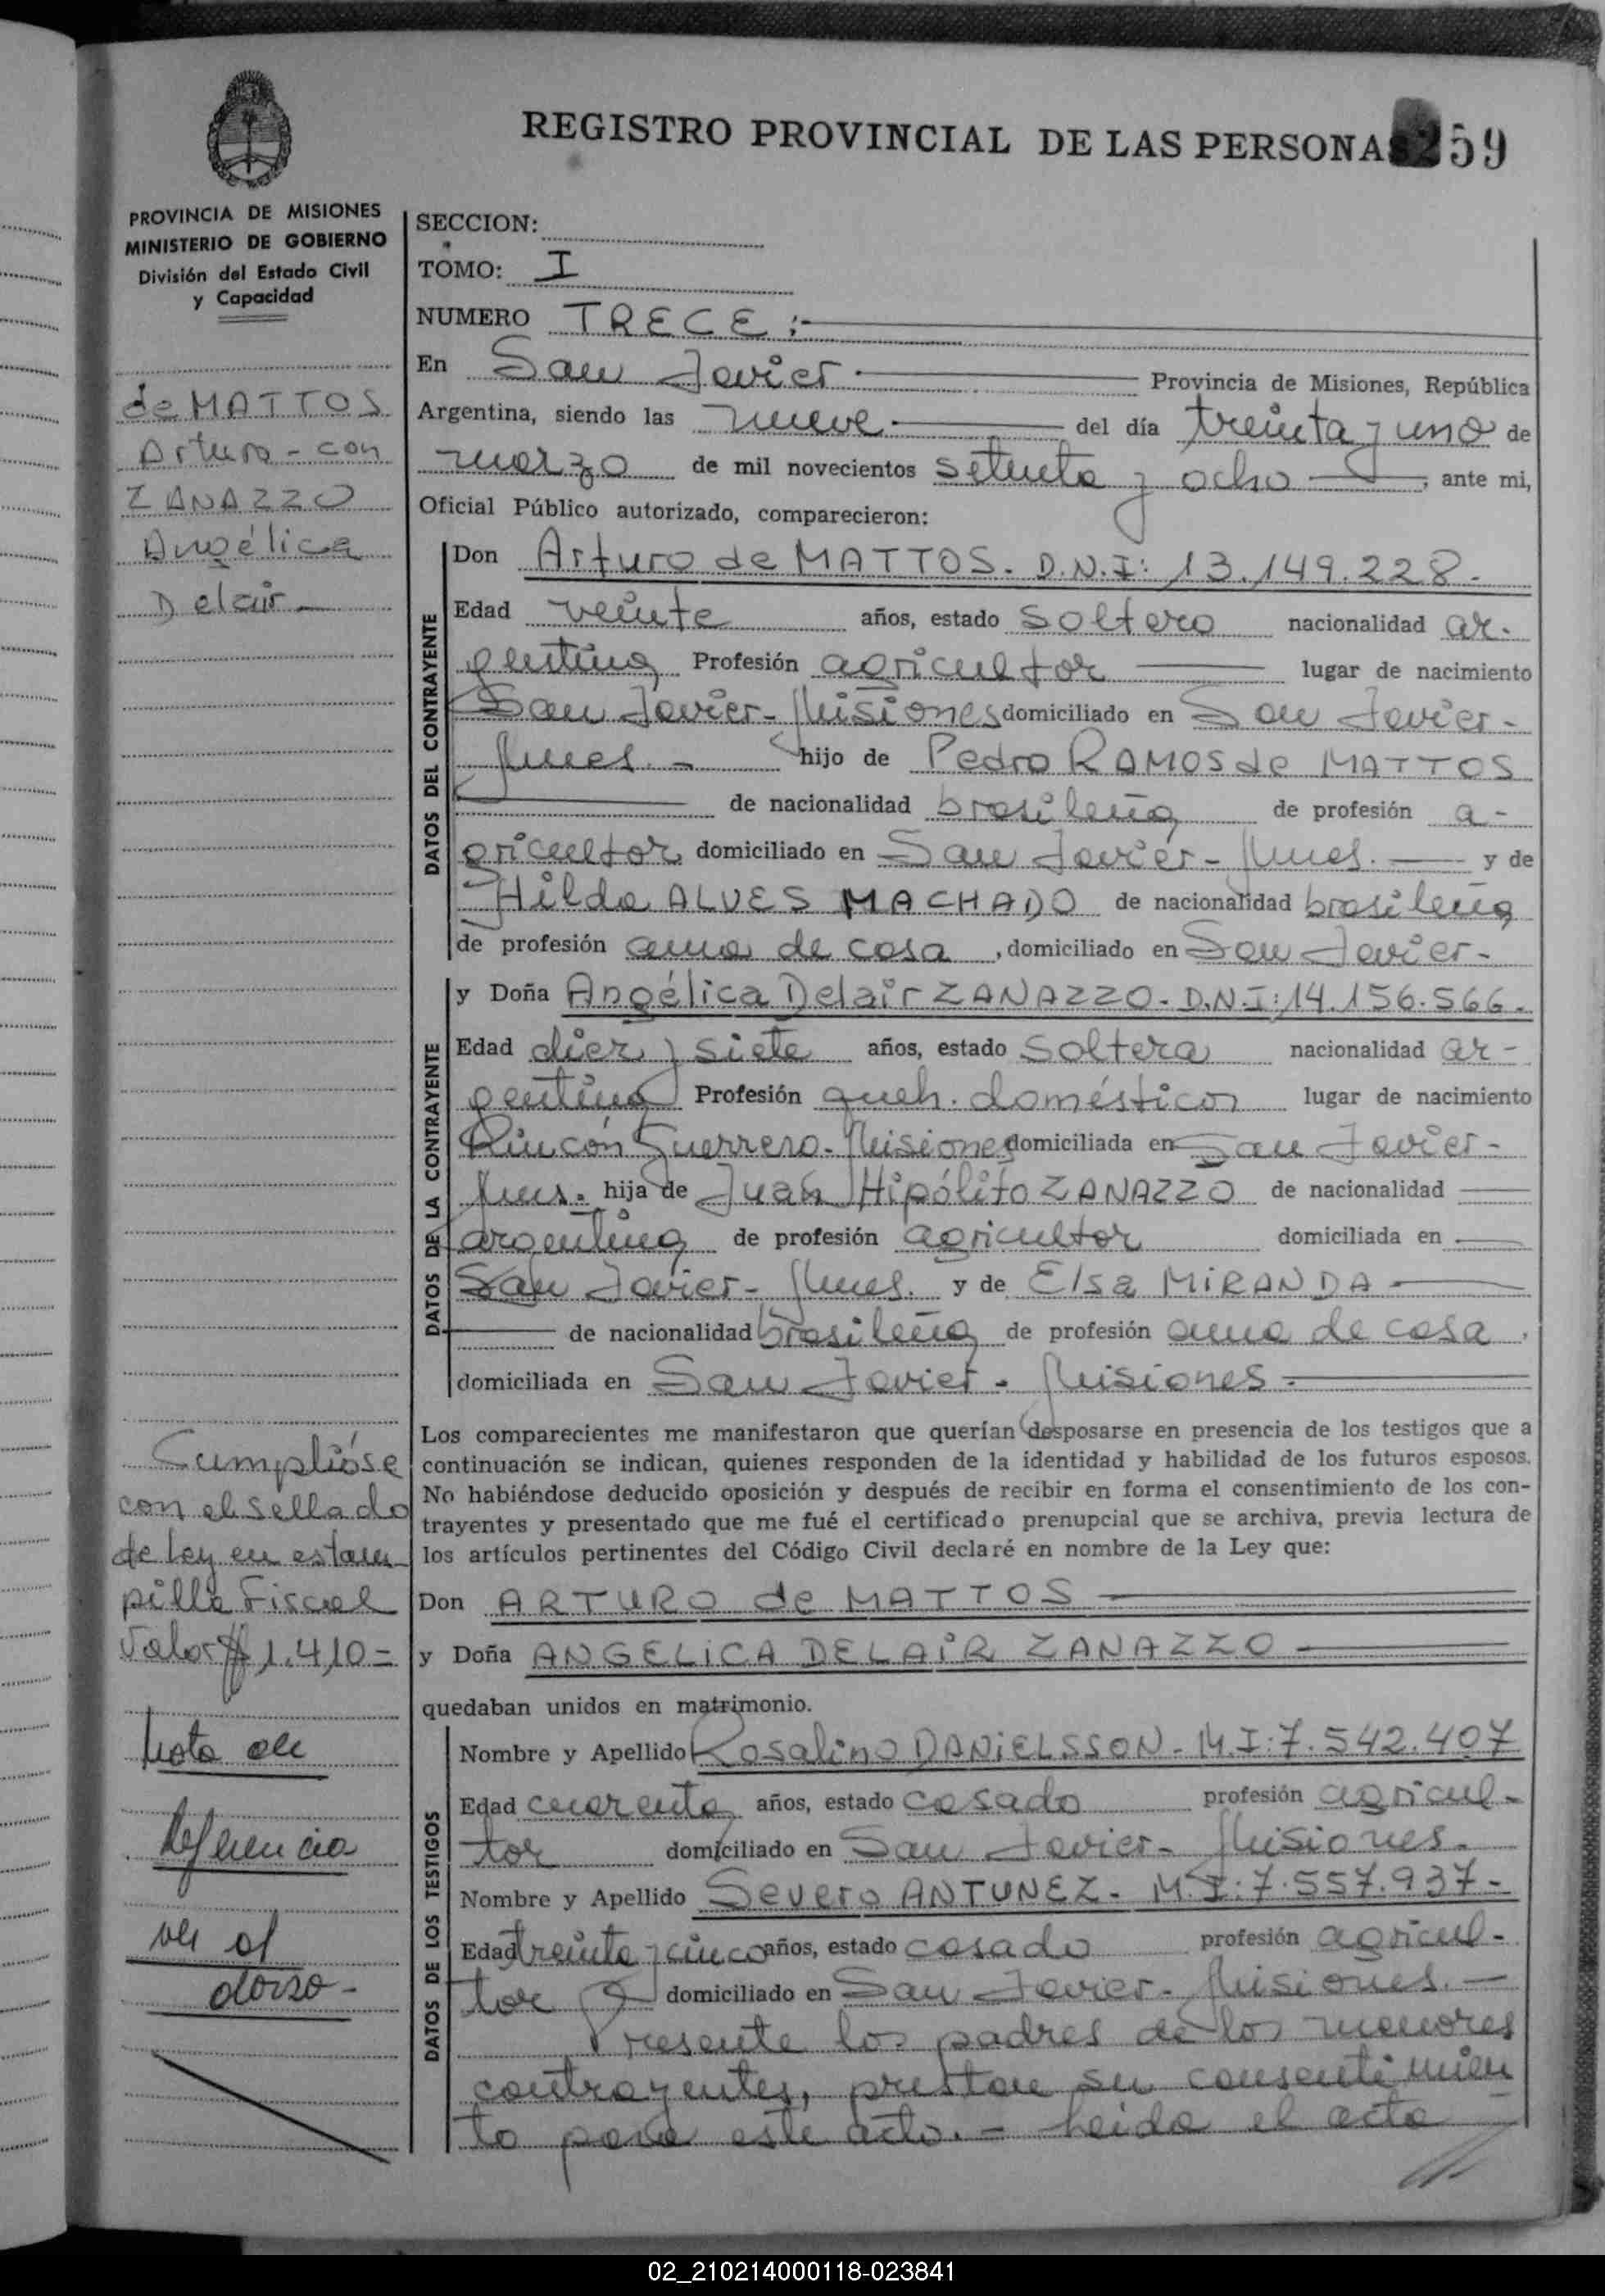 REGISTRO PROVINCIAL DE LAS PERSONAS 259
PROVINCIA DE MISIONES
MINISTERIO DE GOBIERNO
División del Estado Civil
y Capacidad
de MATTOS
Arturo - con
ZANAZZO
Angélica
Delair
SECCION:
TOMO: I
NUMERO TRECE:-
En San Javier Provincia de Misiones, República
Argentina, siendo las nueve del día treinta y uno de
marzo de mil novecientos setenta y ocho ; ante mi,
Oficial Público autorizado, comparecieron:
DATOS DEL CONTRAYENTE
Don Arturo de MATTOS. D.N.I: 13.149.228.-
Edad veinte años, estado soltero nacionalidad ar-
gentina Profesión agricultor lugar de nacimiento
San Javier- Misiones domiciliado en San Javier-
Mnes.- hijo de Pedro RAMOS de MATTOS
de nacionalidad brasileña de profesión a-
gricultor domiciliado en San Javier- Mnes. y de
Hilda ALVES MACHADO de nacionalidad brasileña
de profesión ama de casa , domiciliado en San Javier-
DATOS DE LA CONTRAYENTE
y Doña Angélica Delair ZANAZZO- D.N.I: 14.156.566.-
Edad diez y siete años, estado soltera nacionalidad ar-
gentina Profesión queh. domésticos lugar de nacimiento
Rincón Guerrero- Misiones domiciliada en San Javier-
Mnes. hija de Juan Hipólito ZANAZZO de nacionalidad
argentina de profesión agricultor domiciliada en
San Javier- Mnes. y de Elsa MIRANDA
de nacionalidad brasileña de profesión ama de casa ,
domiciliada en San Javier- Misiones-
Los comparecientes me manifestaron que querían desposarse en presencia de los testigos que a
continuación se indican, quienes responden de la identidad y habilidad de los futuros esposos.
No habiéndose deducido oposición y después de recibir en forma el consentimiento de los con-
trayentes y presentado que me fué el certificado prenupcial que se archiva, previa lectura de
los artículos pertinentes del Código Civil declaré en nombre de la Ley que:
Don ARTURO de MATTOS
y Doña ANGELICA DELAIR ZANAZZO
quedaban unidos en matrimonio.
Cumplióse
con el sellado
de ley en estam-
pilla Fiscal
Valor $ 1.410=
Nota de
Referencia
ver al
dorso-
DATOS DE LOS TESTIGOS
Nombre y Apellido Rosalino DANIELSSON- M.I: 7.542.407
Edad cuarenta años, estado casado profesión agricul-
tor domiciliado en San Javier- Misiones.
Nombre y Apellido Severo ANTUNEZ- M.I: 7.557.937-
Edad treinta y cinco años, estado casado profesión agricul-
tor domiciliado en San Javier- Misiones.-
Presente los padres de los menores
contrayentes, prestan su consentimien
to para este acto.- Leída el acta
02_210214000118-023841